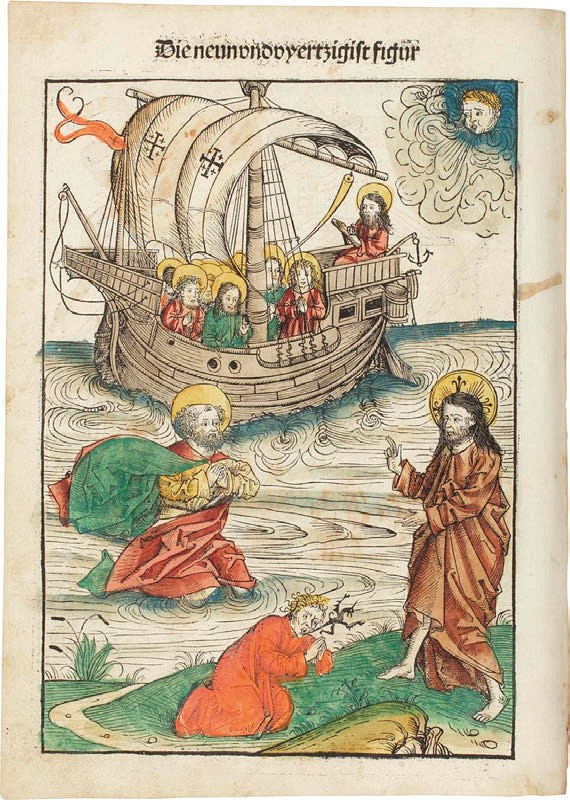 Die neunvndvyertzigist figur